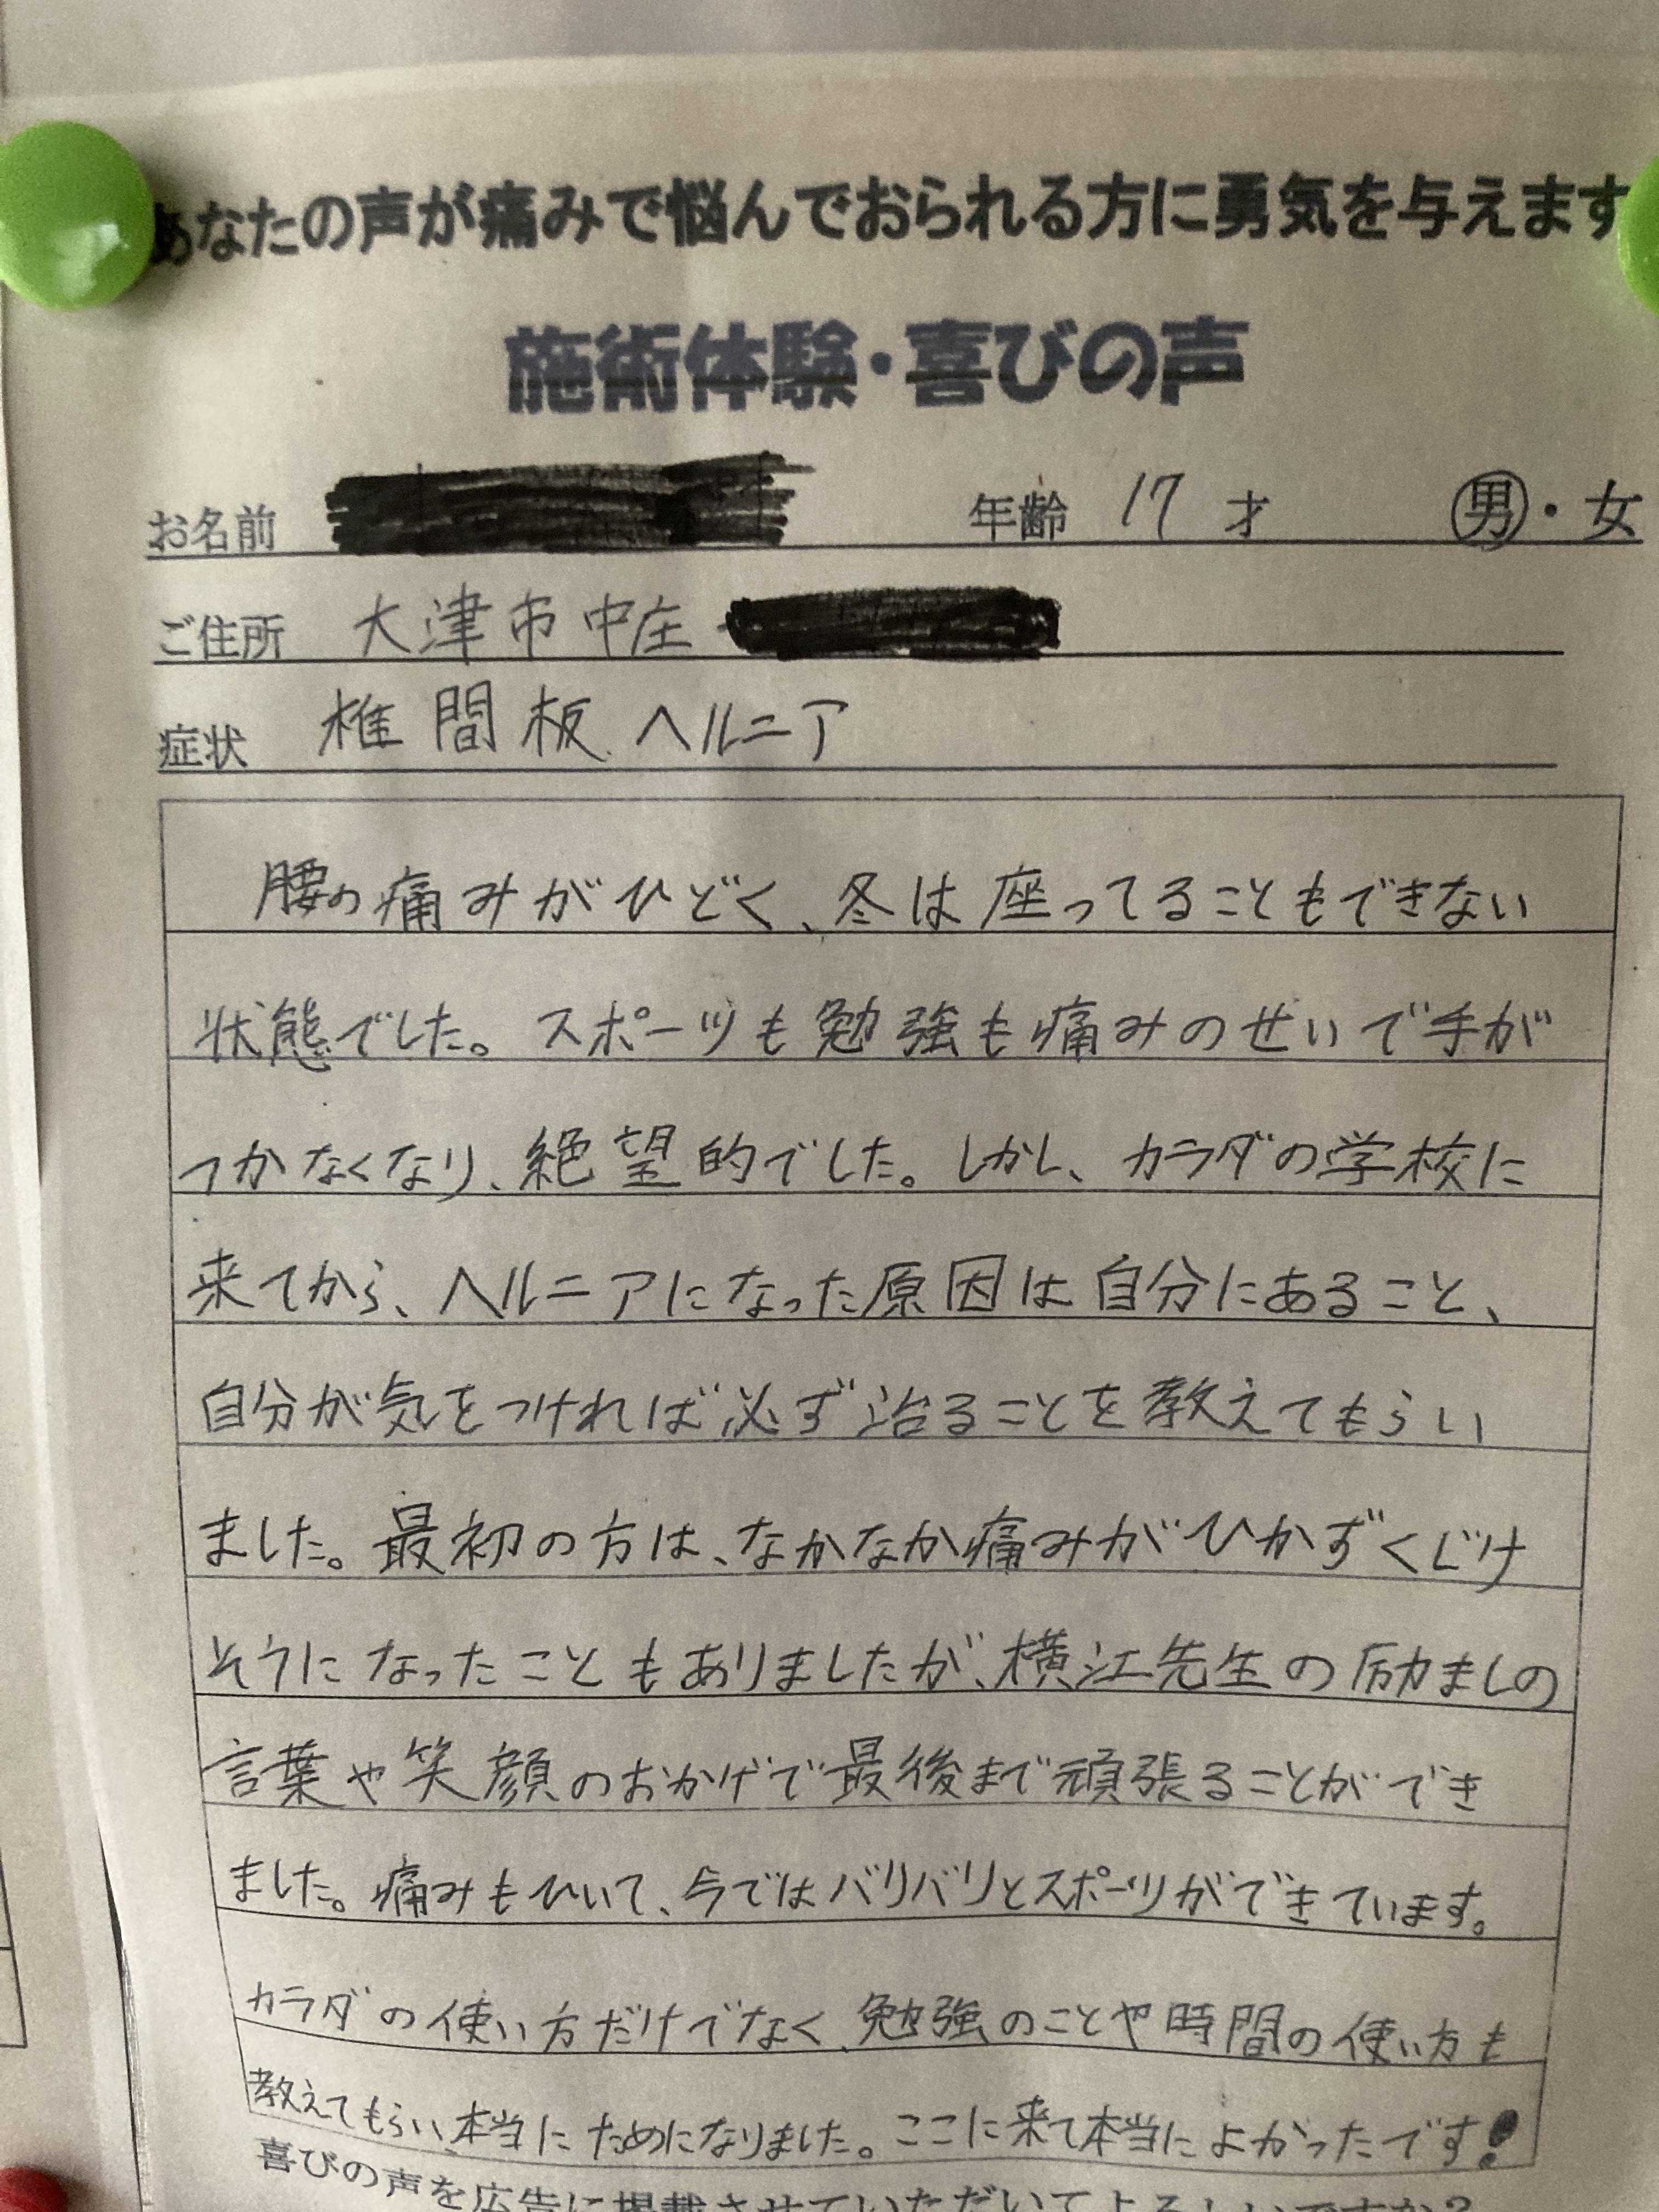 あなたの声が痛みで悩んでおられる方に勇気を与えます
施術体験・喜びの声
お名前 年齢 17 才 男・女
ご住所 大津市中庄
症状 椎間板ヘルニア
腰の痛みがひどく、冬は座ってることもできない
状態でした。スポーツも勉強も痛みのせいで手が
つかなくなり、絶望的でした。しかし、カラダの学校に
来てから、ヘルニアになった原因は自分にあること、
自分が気をつければ必ず治ることを教えてもらい
ました。最初の方は、なかなか痛みがひかずくじけ
そうになったこともありましたが、横江先生の励ましの
言葉や笑顔のおかげで最後まで頑張ることができ
ました。痛みもひいて、今ではバリバリとスポーツができています。
カラダの使い方だけでなく、勉強のことや時間の使い方も
教えてもらい、本当にためになりました。ここに来て本当によかったです!
喜びの声を広告に掲載させていただいてよろしいですか?